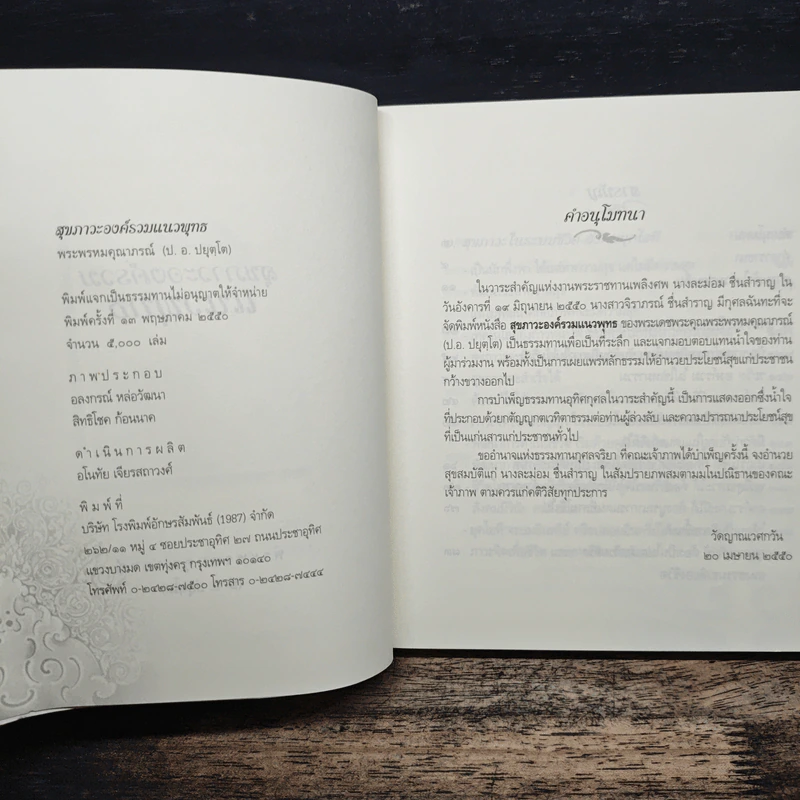 สุขภาวะองค์รวมแนวพุทธ
พระพรหมคุณาภรณ์ (ป. อ. ปยุตฺโต)
พิมพ์แจกเป็นธรรมทานไม่อนุญาตให้จำหน่าย
พิมพ์ครั้งที่ ๑๓ พฤษภาคม ๒๕๕๐
จำนวน ๕,๐๐๐ เล่ม
ภาพประกอบ
อลงกรณ์ หล่อวัฒนา
สิทธิโชค ก้อนนาค
ดำเนินการผลิต
อโนทัย เจียรสถาวงศ์
พิมพ์ที่
บริษัท โรงพิมพ์อักษรสัมพันธ์ (1987) จำกัด
๒๖๒/๑๑ หมู่ ๔ ซอยประชาอุทิศ ๒๗ ถนนประชาอุทิศ
แขวงบางมด เขตทุ่งครุ กรุงเทพฯ ๑๐๑๔๐
โทรศัพท์ ๐-๒๔๒๘-๗๕๐๐ โทรสาร ๐-๒๔๒๘-๗๔๔๔
คำอนุโมทนา
ในวาระสำคัญแห่งงานพระราชทานเพลิงศพ นางละม่อม ชื่นสำราญ ใน
วันอังคารที่ ๑๙ มิถุนายน ๒๕๕๐ นางสาวจิราภรณ์ ชื่นสำราญ มีกุศลฉันทะที่จะ
จัดพิมพ์หนังสือ สุขภาวะองค์รวมแนวพุทธ ของพระเดชพระคุณพระพรหมคุณาภรณ์
(ป.อ. ปยุตฺโต) เป็นธรรมทานเพื่อเป็นที่ระลึก และแจกมอบตอบแทนน้ำใจของท่าน
ผู้มาร่วมงาน พร้อมทั้งเป็นการเผยแพร่หลักธรรมให้อำนวยประโยชน์สุขแก่ประชาชน
กว้างขวางออกไป
การบำเพ็ญธรรมทานอุทิศกุศลในวาระสำคัญนี้ เป็นการแสดงออกซึ่งน้ำใจ
ที่ประกอบด้วยกตัญญูกตเวทิตาธรรมต่อท่านผู้ล่วงลับ และความปรารถนาประโยชน์สุข
ที่เป็นแก่นสารแก่ประชาชนทั่วไป
ขออำนาจแห่งธรรมทานกุศลจริยา ที่คณะเจ้าภาพได้บำเพ็ญครั้งนี้ จงอำนวย
สุขสมบัติแก่ นางละม่อม ชื่นสำราญ ในสัมปรายภพสมตามมโนปณิธานของคณะ
เจ้าภาพ ตามควรแก่คติวิสัยทุกประการ
วัดญาณเวศกวัน
๒๐ เมษายน ๒๕๕๐